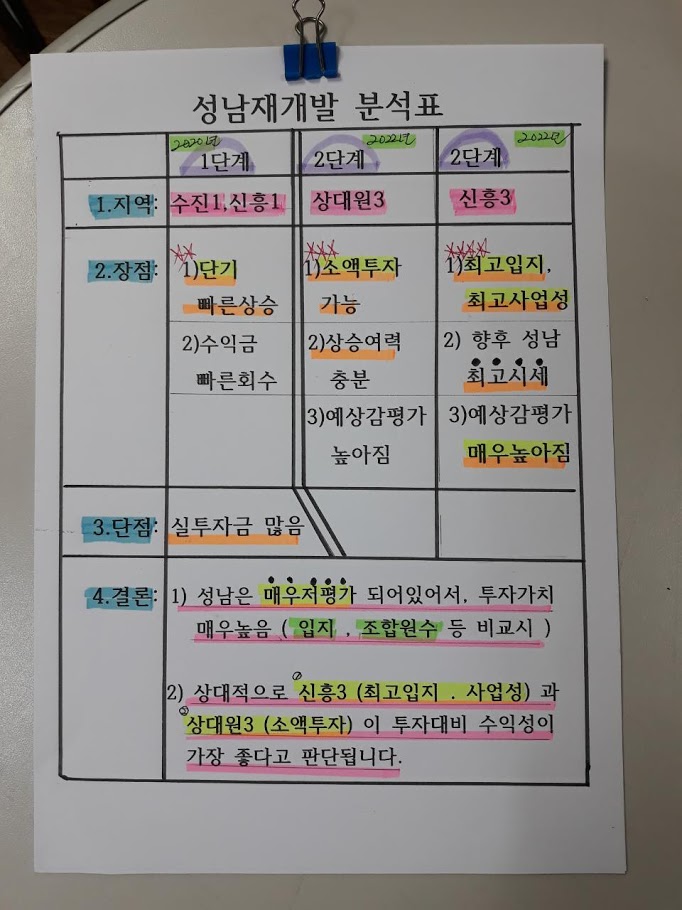 성남재개발 분석표
2020년
1단계
2022년
2단계
2022년
2단계
1.지역: 수진1,신흥1 상대원3 신흥3
2.장점:
1)단기
빠른상승
2)수익금
빠른회수
1)소액투자
가능
2)상승여력
충분
3)예상감평가
높아짐
1)최고입지,
최고사업성
2) 향후 성남
최고시세
3)예상감평가
매우높아짐
3.단점: 실투자금 많음
4.결론: 1) 성남은 매우저평가 되어있어서, 투자가치
매우높음 ( 입지 , 조합원수 등 비교시 )
2) 상대적으로 ① 신흥3 (최고입지 . 사업성) 과
② 상대원3 (소액투자) 이 투자대비 수익성이
가장 좋다고 판단됩니다.